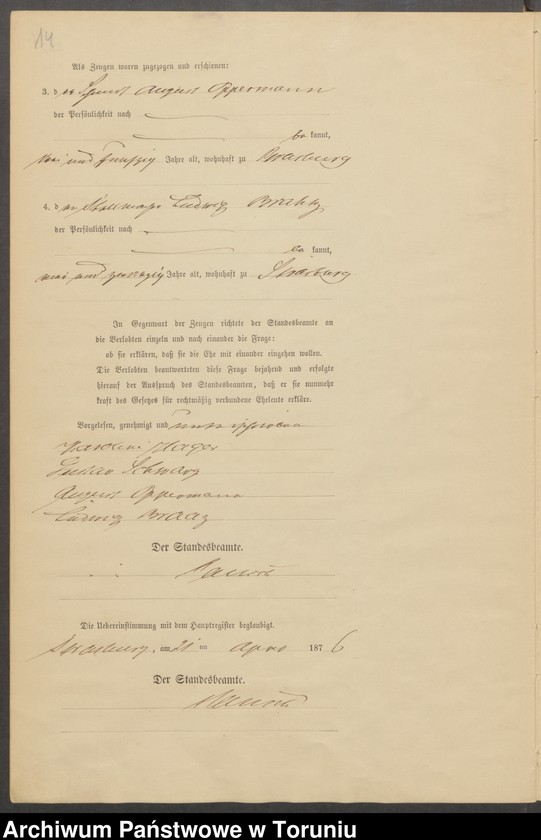 14
Als Zeugen waren zugezogen und erschienen:
3. d er August Oppermann
der Persönlichkeit nach
be kannt,
und funfzig Jahre alt, wohnhaft zu Strasburg
4. d er Ludwig
der Persönlichkeit nach
be kannt,
und zwanzig Jahre alt, wohnhaft zu Strasburg
In Gegenwart der Zeugen richtete der Standesbeamte an
die Verlobten einzeln und nach einander die Frage:
ob sie erklären, daß sie die Ehe mit einander eingehen wollen.
Die Verlobten beantworteten diese Frage bejahend und erfolgte
hierauf der Ausspruch des Standesbeamten, daß er sie nunmehr
kraft des Gesetzes für rechtmäßig verbundene Eheleute erkläre.
Vorgelesen, genehmigt und unterschrieben
August Oppermann
Ludwig Braatz
Der Standesbeamte.
Die Uebereinstimmung mit dem Hauptregister beglaubigt.
Strasburg, am 21 ten April 187 6
Der Standesbeamte.
Archiwum Państwowe w Toruniu